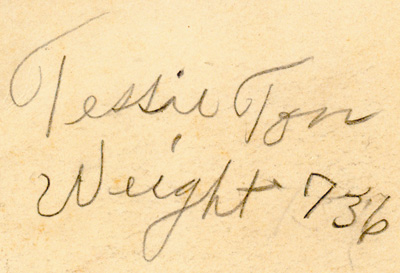 Tessie Ton
Weight 736